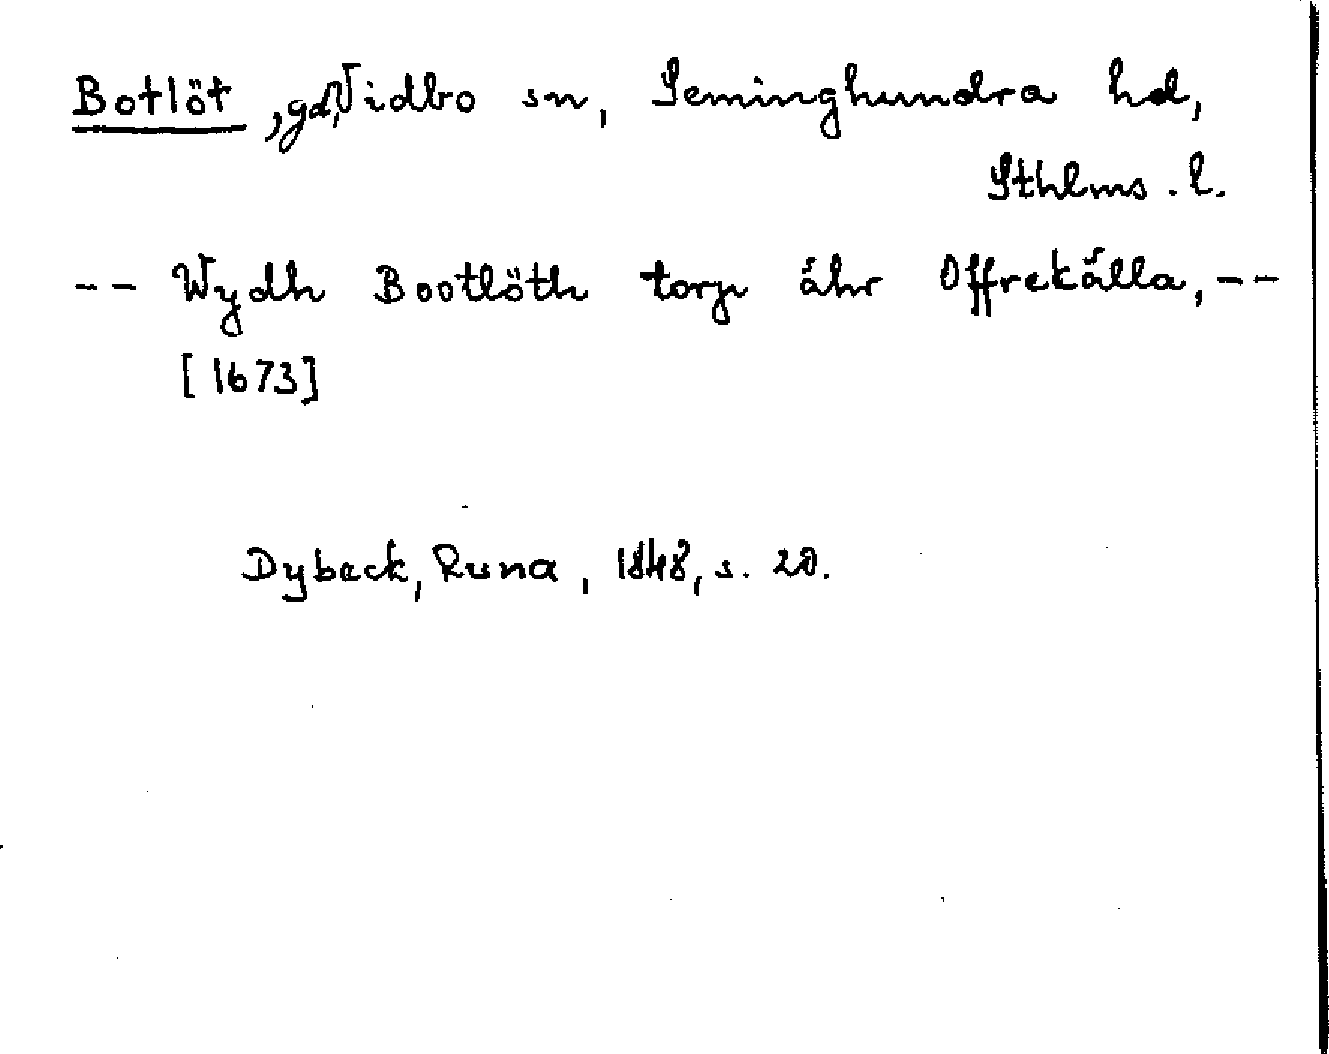 Botlöt, gd, Vidbo sn, Seminghundra hd,
Sthlms. l.
-- Wydh Bootlöth torp ähr Offrekälla, --
[1673]
Dybeck, Runa, 1848, s. 20.